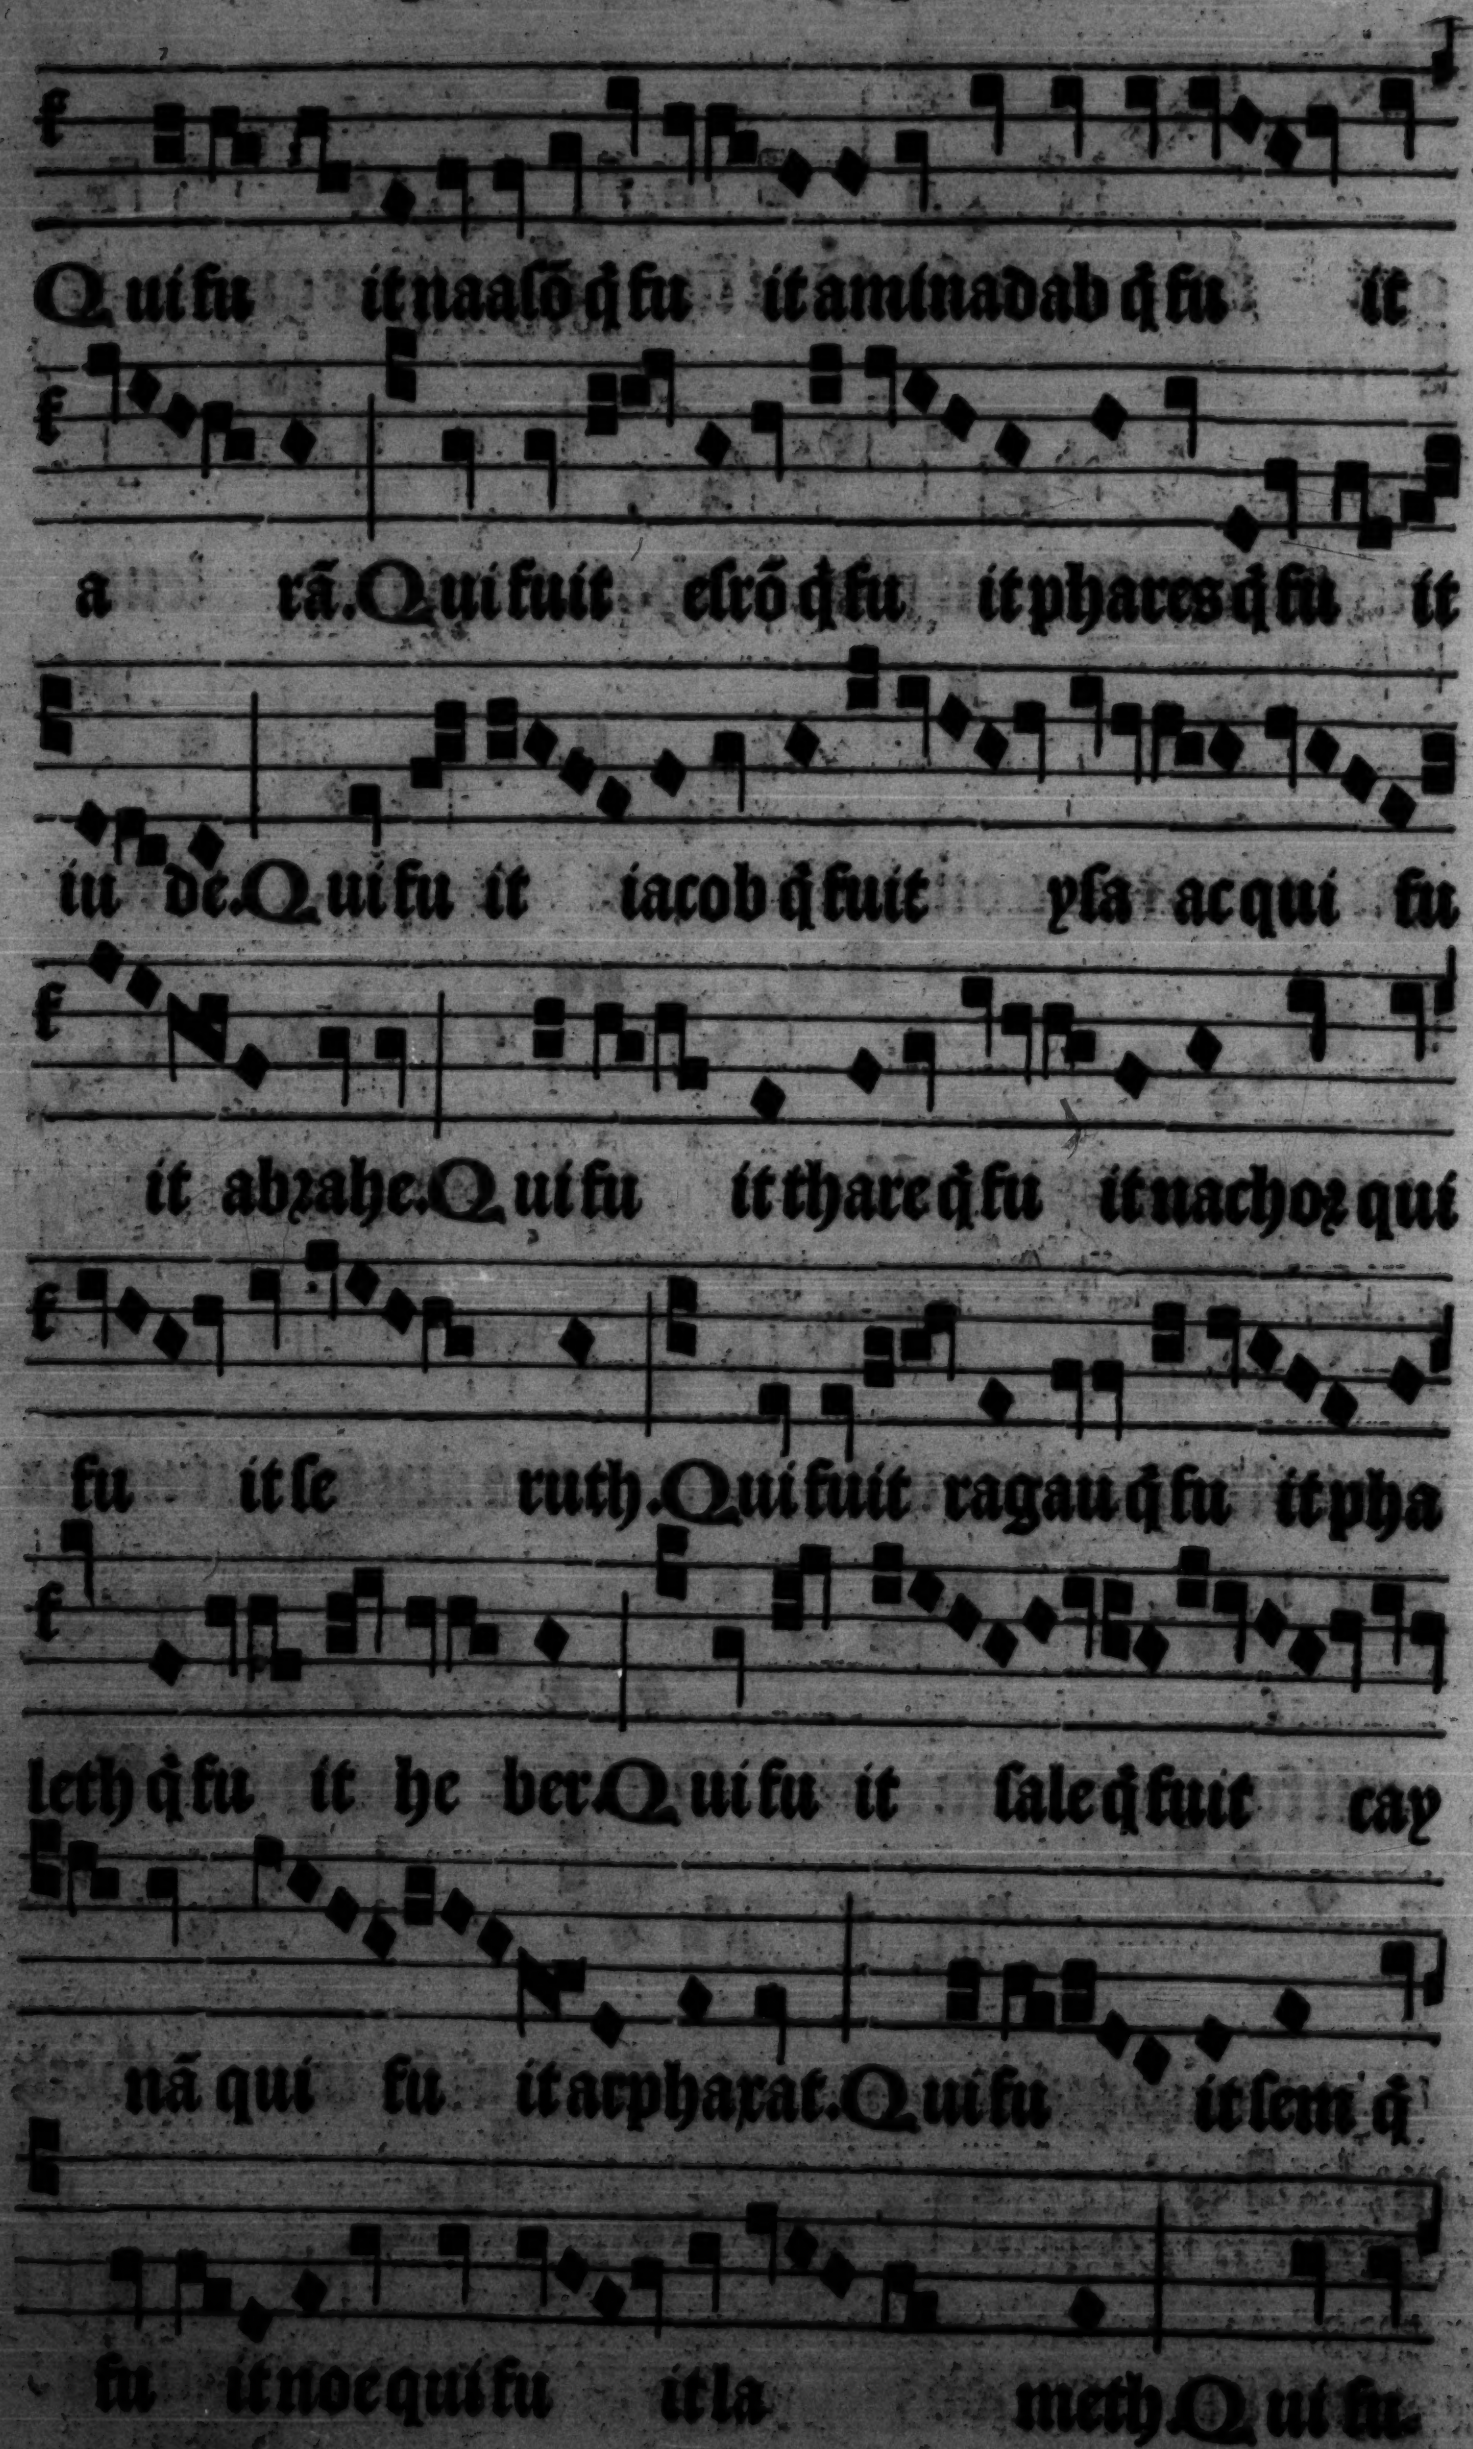 Qui fu it naasõ q̇ fu it aminadab q̇ fu it
a rã. Qui fuit esrõ q̇ fu it phares q̇ fu it
iu de. Qui fu it iacob q̇ fuit ysa ac qui fu
it abꝛahe. Qui fu it thare q̇ fu it nachoꝛ qui
fu it se ruth. Qui fuit ragau q̇ fu it pha
leth q̇ fu it he ber. Qui fu it sale q̇ fuit cay
nã qui fu it arphaxat. Qui fu it sem q̇
fu it noe qui fu it la meth. Qui fu